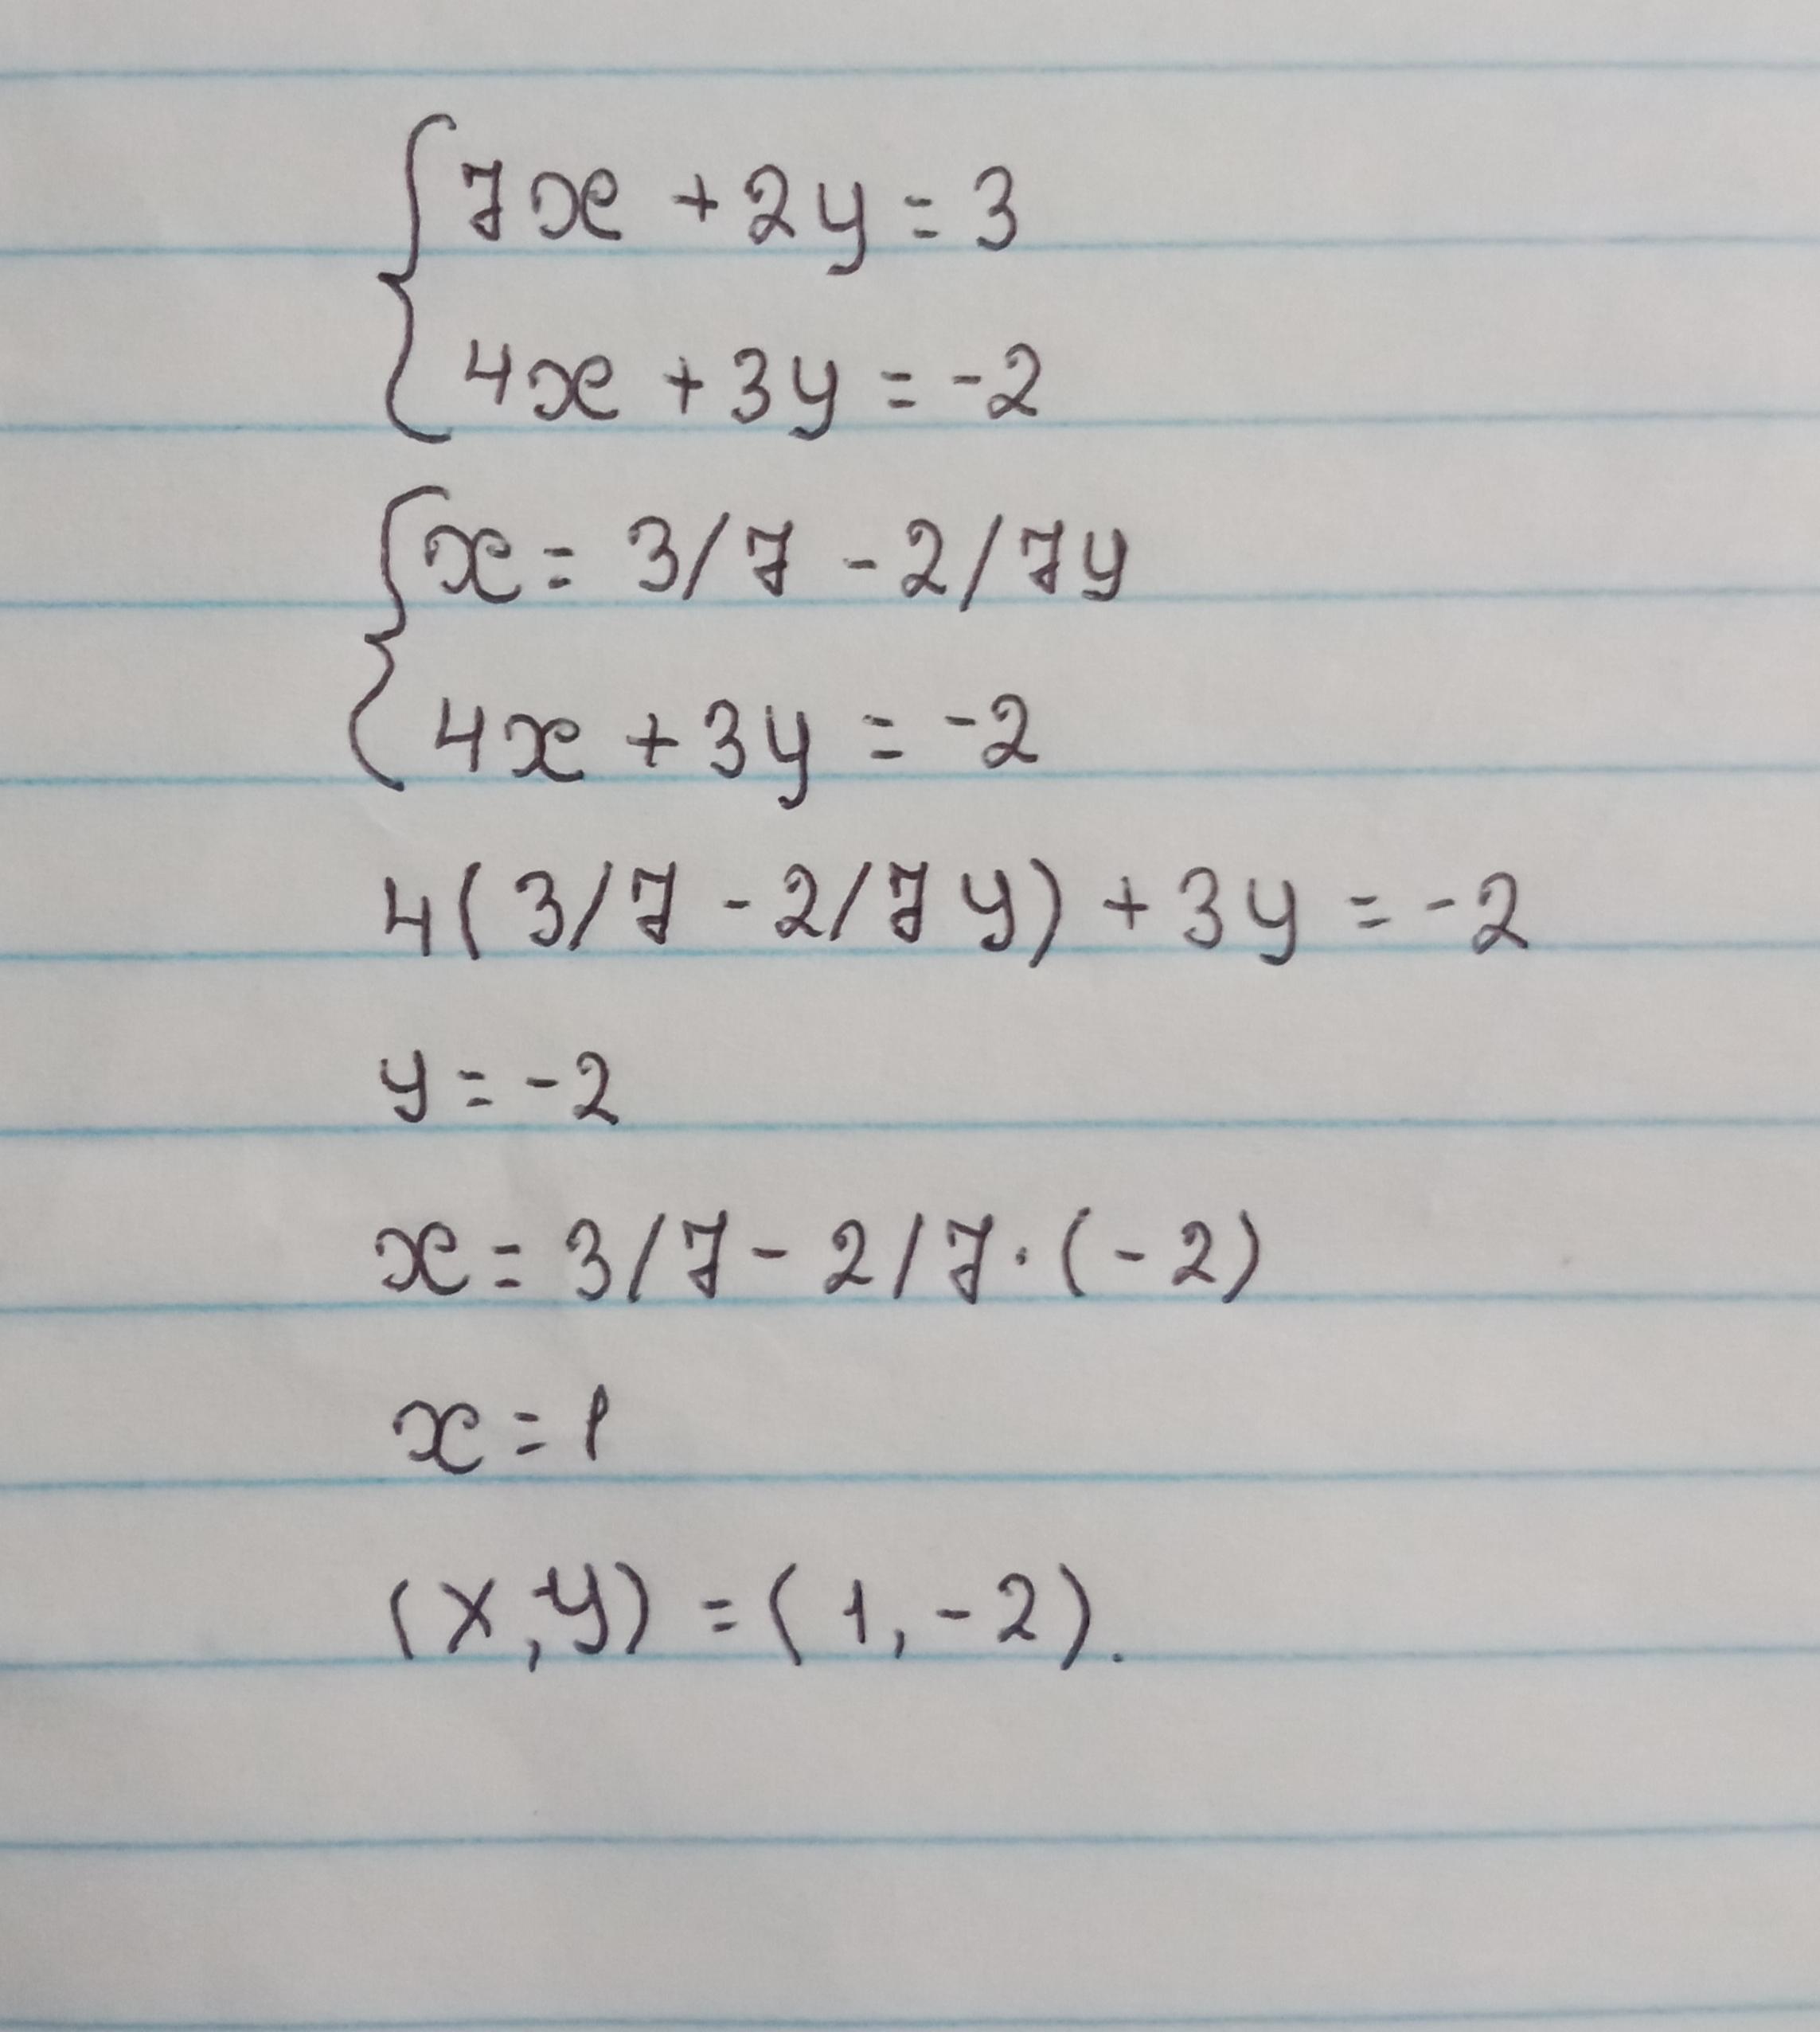 { 7x + 2y = 3
4x + 3y = -2
{ x = 3/7 - 2/7y
4x + 3y = -2
4(3/7 - 2/7 y) + 3y = -2
y = -2
x = 3/7 - 2/7 · (-2)
x = 1
(x, y) = (1, -2).